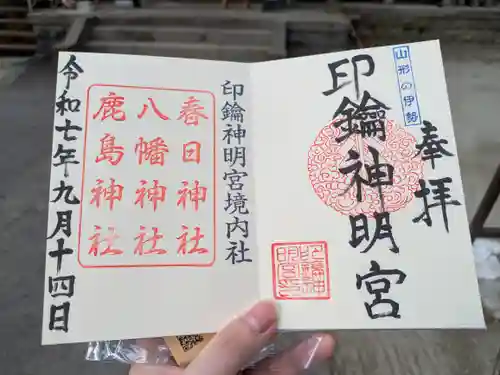 山形の伊勢
奉拝
印鑰神明宮
印鑰神明宮境内社
春日神社
八幡神社
鹿島神社
令和七年九月十四日